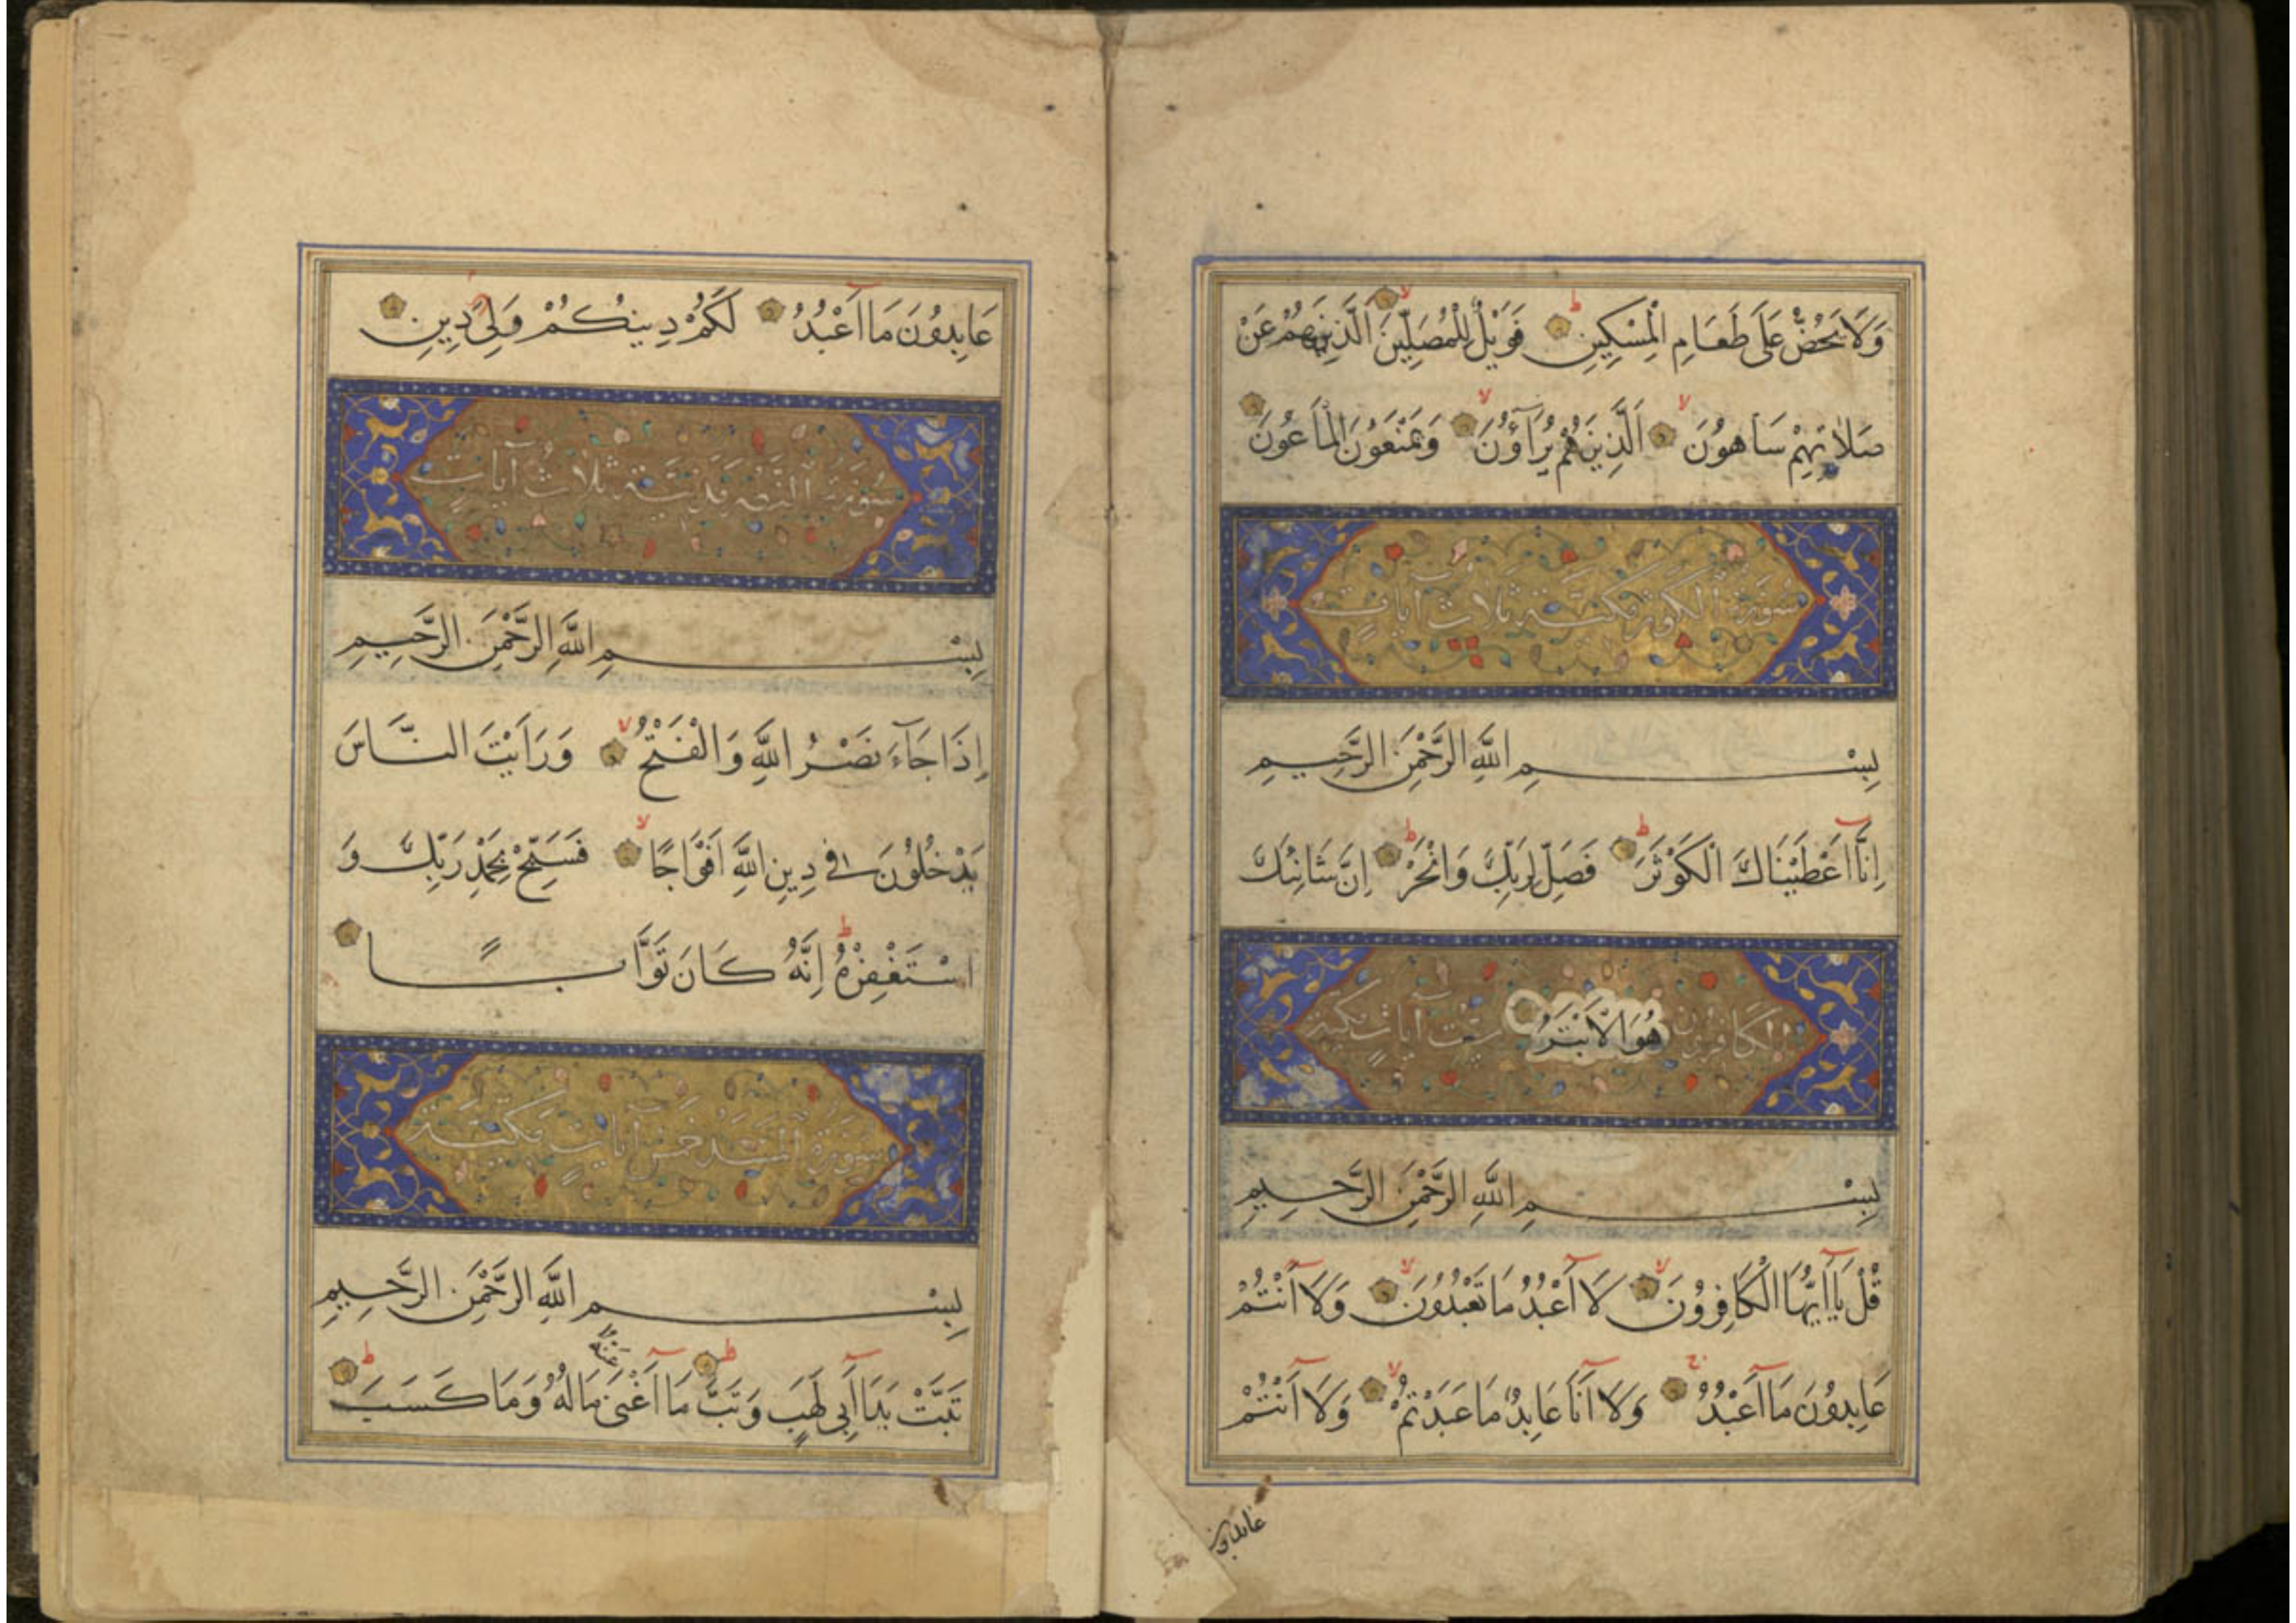 وَلَا يَحُضُّ عَلَى طَعَامِ الْمِسْكِينِ فَوَيْلٌ لِلْمُصَلِّينَ اَلَّذِينَ هُمْ عَنْ
صَلَاتِهِمْ سَاهُونَ اَلَّذِينَ هُمْ يُرَآؤُنَ وَيَمْنَعُونَ الْمَاعُونَ
سُورَةُ الْكَوْثَرِ مَكِّيَّةٌ ثَلَاثُ آيَاتٍ
بِسْمِ اللَّهِ الرَّحْمَنِ الرَّحِيمِ
اِنَّآ اَعْطَيْنَاكَ الْكَوْثَرَ فَصَلِّ لِرَبِّكَ وَانْحَرْ اِنَّ شَانِئَكَ
الكَافِرُون هُوَ الْاَبْتَرُ سِتُّ آيَاتٍ مَكِّيَّة
بِسْمِ اللَّهِ الرَّحْمَنِ الرَّحِيمِ
قُلْ يَآ اَيُّهَا الْكَافِرُونَ لَآ اَعْبُدُ مَا تَعْبُدُونَ وَلَآ اَنْتُمْ
عَابِدُونَ مَآ اَعْبُدُ وَلَآ اَنَا عَابِدٌ مَا عَبَدْتُمْ وَلَآ اَنْتُمْ
عابدون
عَابِدُونَ مَآ اَعْبُدُ لَكُمْ دِينُكُمْ وَلِيَ دِينِ
سُورَةُ النَّصْرِ مَدَنِيَّةٌ ثَلَاثُ آيَاتٍ
بِسْمِ اللَّهِ الرَّحْمَنِ الرَّحِيمِ
اِذَا جَآءَ نَصْرُ اللَّهِ وَالْفَتْحُ وَرَاَيْتَ النَّاسَ
يَدْخُلُونَ فِي دِينِ اللَّهِ اَفْوَاجًا فَسَبِّحْ بِحَمْدِ رَبِّكَ وَ
اسْتَغْفِرْهُ اِنَّهُ كَانَ تَوَّابًا
سُورَةُ الْمَسَدِ خَمْسُ آيَاتٍ مَكِّيَّةٌ
بِسْمِ اللَّهِ الرَّحْمَنِ الرَّحِيمِ
تَبَّتْ يَدَآ اَبِي لَهَبٍ وَتَبَّ مَآ اَغْنَى عَنْهُ مَالُهُ وَمَا كَسَبَ